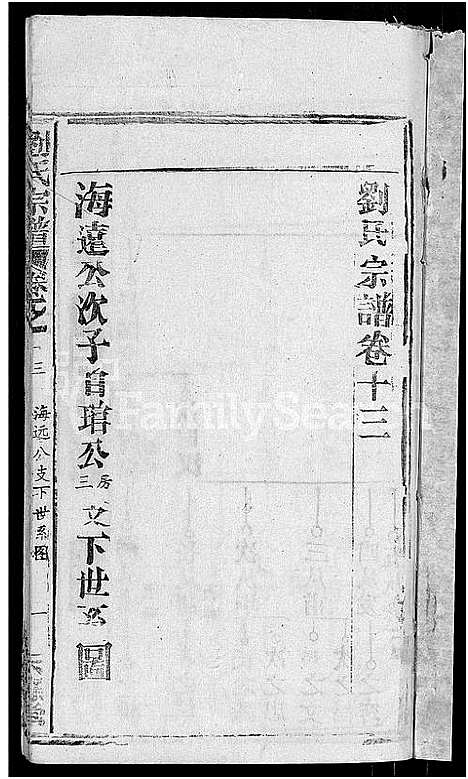 劉氏宗譜卷十三
海遠公次子自琯公三房支下世系圖
劉氏宗譜
三
海远公支下世系图
一
FamilySearch